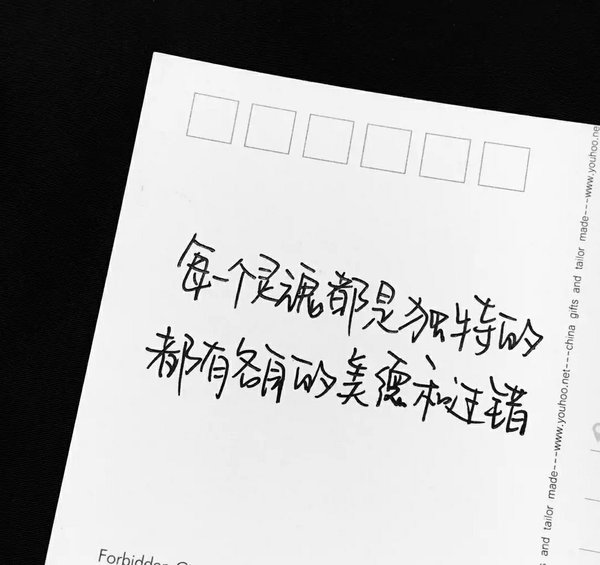 每一个灵魂都是独特的
都有各自的美德和过错
Forbidden
www.youhoo.net---china gifts and tailor made---www.youhoo.ne
and tailor made---